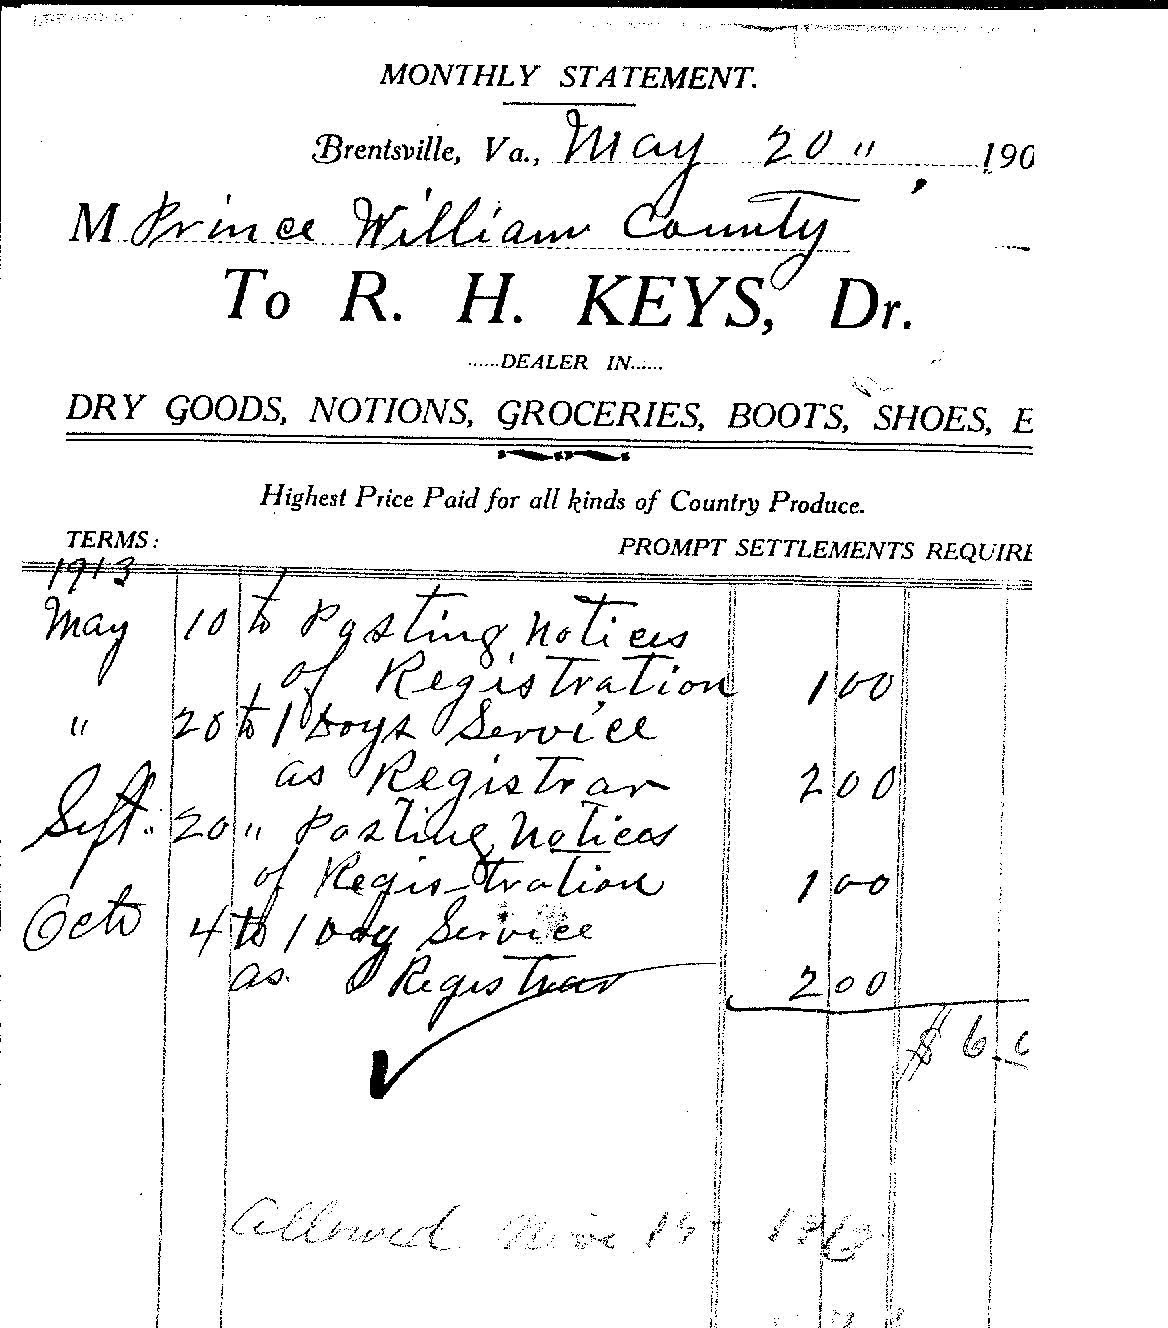 MONTHLY STATEMENT.
Brentsville, Va., May 20 " 190
M Prince William County
To R. H. KEYS, Dr.
......DEALER IN......
DRY GOODS, NOTIONS, GROCERIES, BOOTS, SHOES, E
Highest Price Paid for all kinds of Country Produce.
TERMS: PROMPT SETTLEMENTS REQUIRE
1913
May 10 to Posting Notices
of Registration 1 00
" 20 to 1 Days Service
as Registrar 2 00
Sept. 20 " Posting Notices
of Registration 1 00
Octo 4 to 1 Day Service
as Registrar 2 00
$ 6.0
Allowed